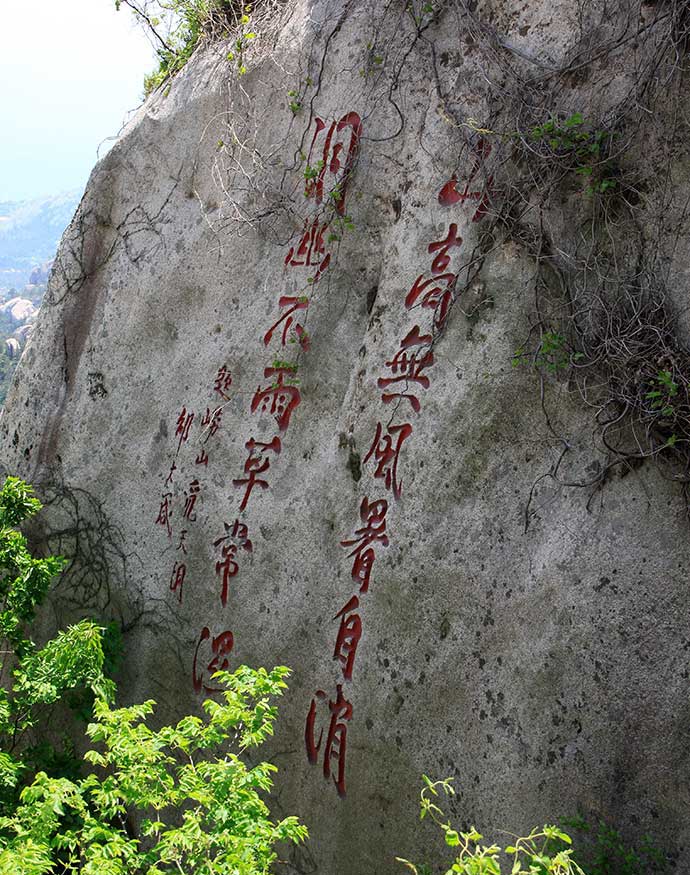 山高無風暑自消
洞幽不雨草常溼
題嶗山覓天洞
大成